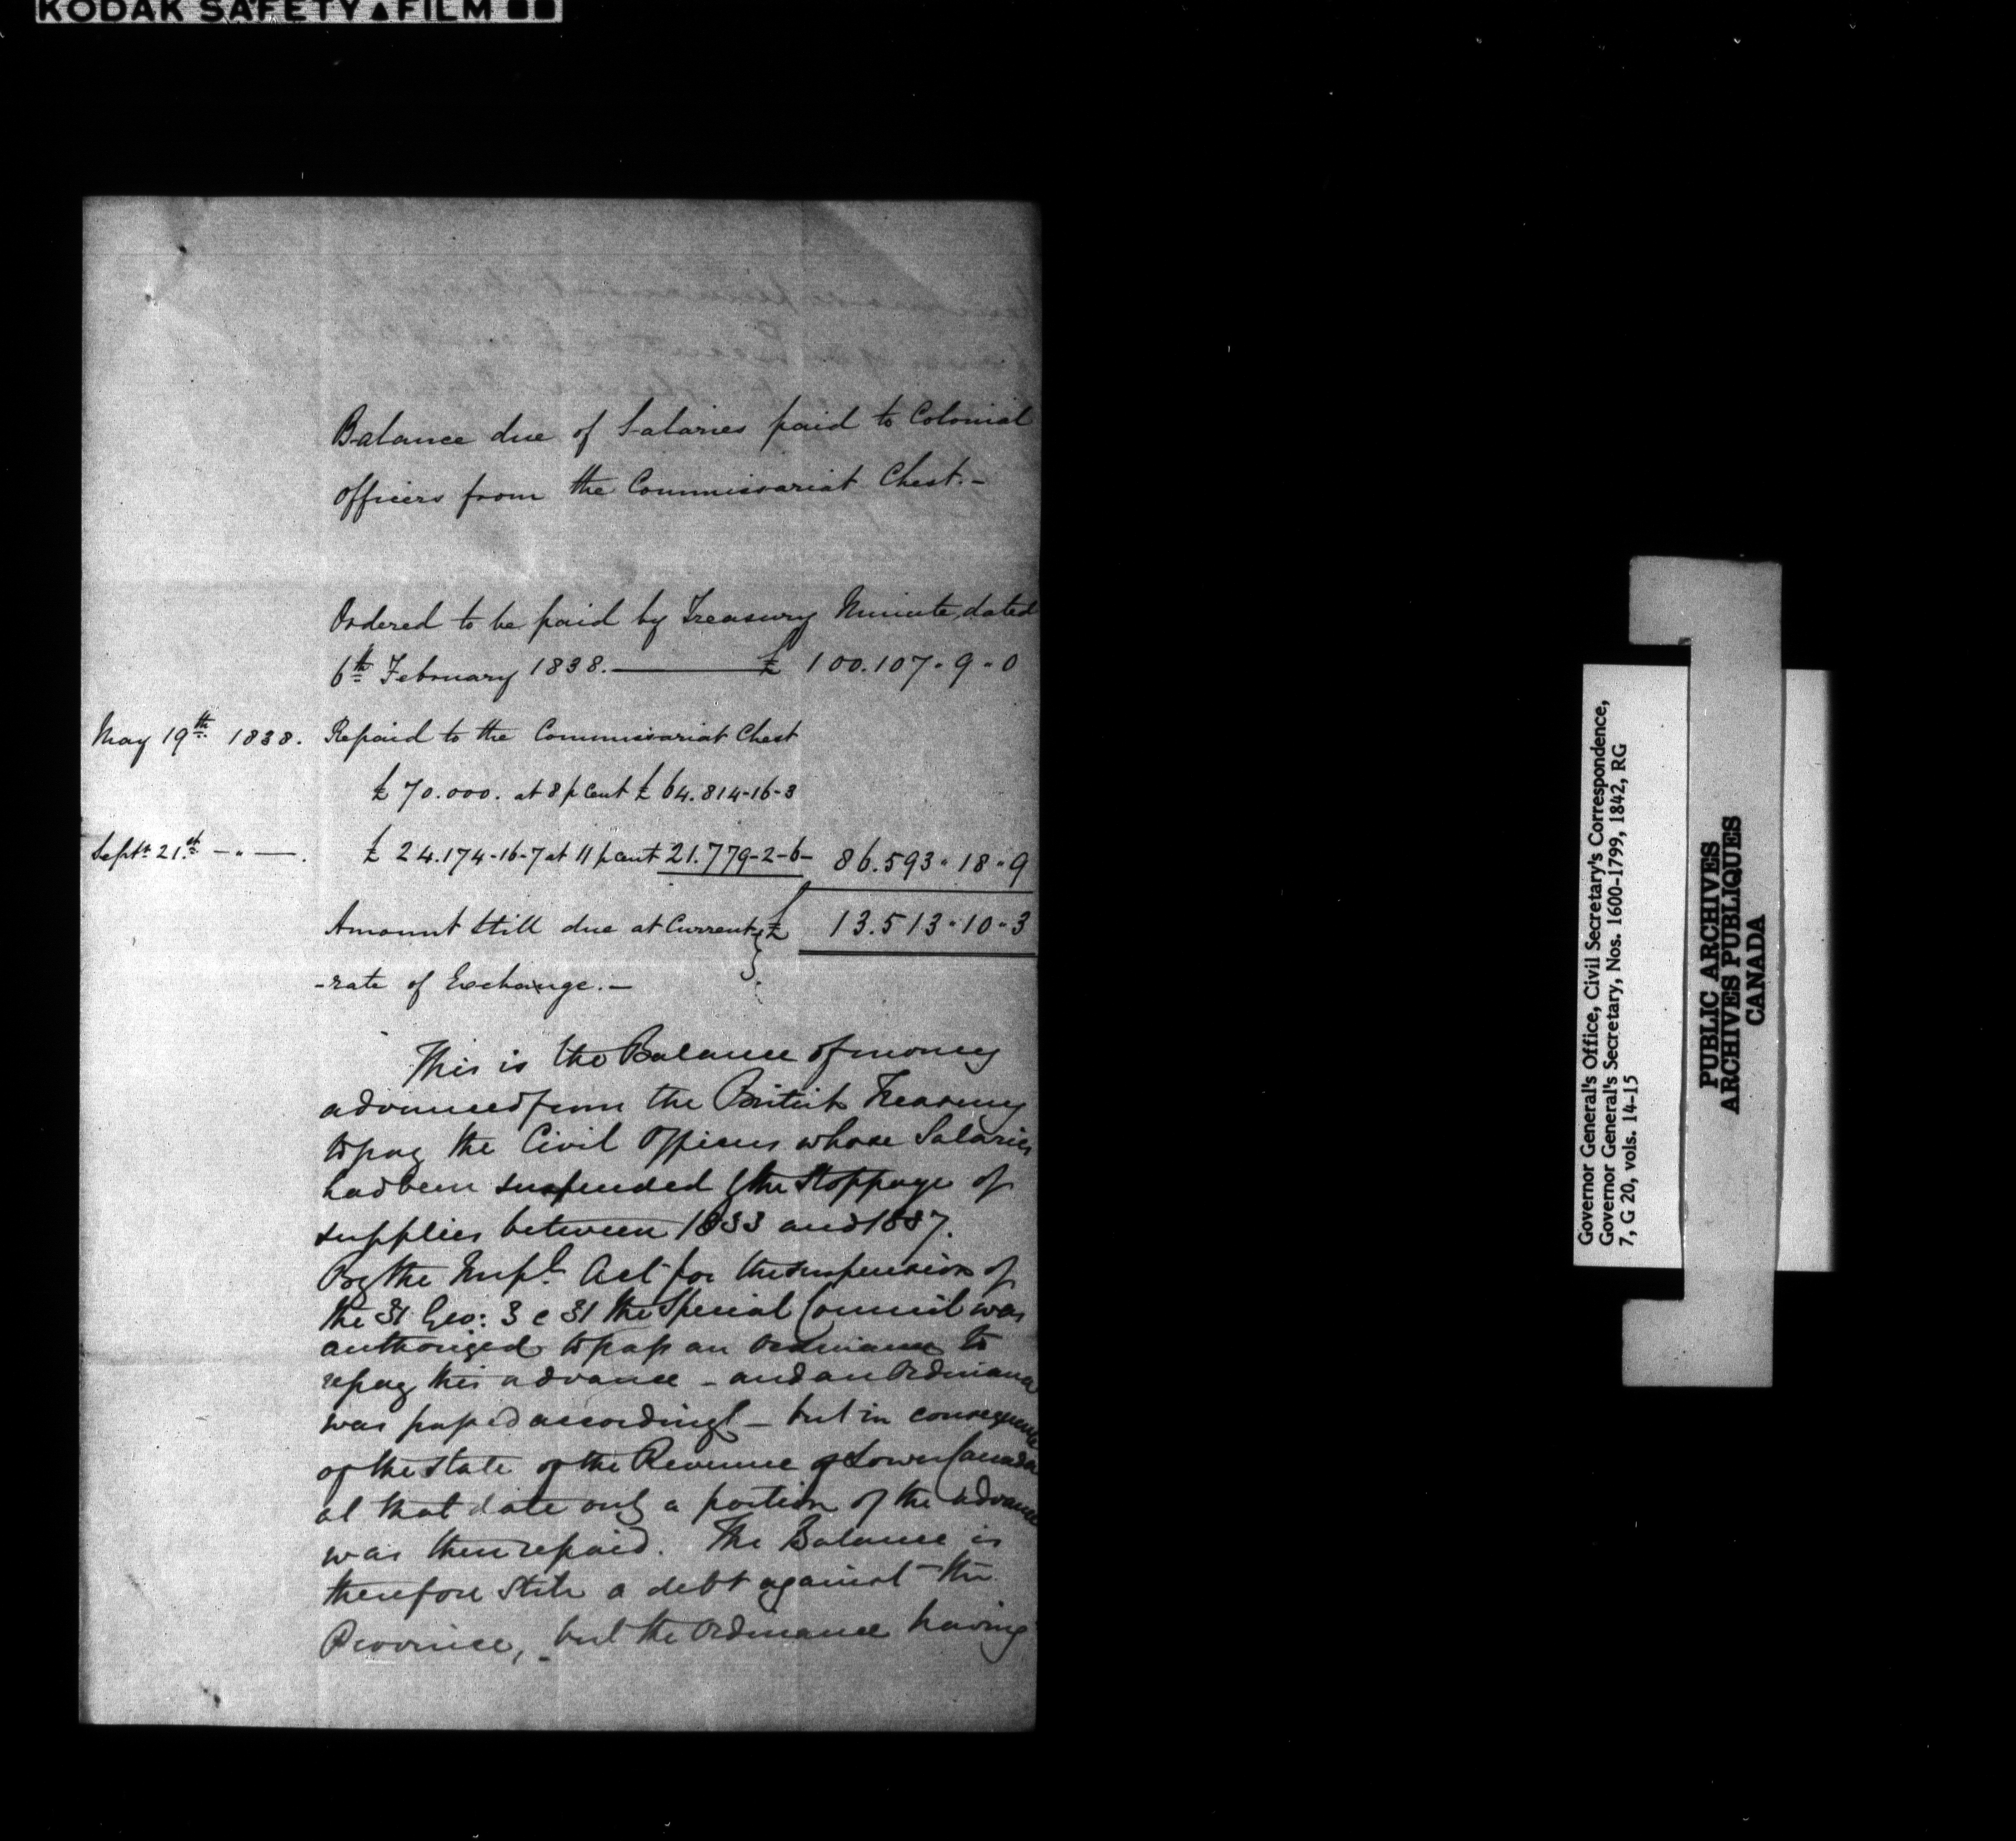 KODAK SAFETY ▲ FILM
Balance due of Salaries paid to Colonial
officers from the Commissariat Chest.-
Ordered to be paid by Treasury Minute, dated
6th February 1838. ——— £ 100.107-9-0
May 19th 1838. Repaid to the Commissariat Chest
£ 70.000. at 8 p Cent £ 64.814-16-3
Septr 21st -"-. £ 24.174-16-7 at 11 p cent 21.779-2-6- 86.593-18-9
Amount still due at Current £ 13.513-10-3
-rate of Exchange.-
This is the Balance of money
advanced from the British Treasury
to pay the Civil Officers whose Salaries
had been suspended by the Stoppage of
supplies between 1833 and 1837.
By the Impl. Act for the suspension of
the 31 Geo: 3 c 31 the Special Council was
authorized to pass an Ordinance to
repay this advance - and an Ordinance
was passed accordingly - but in consequence
of the state of the Revenue of Lower Canada
at that date only a portion of the advance
was then repaid. The Balance is
therefore still a debt against the
Province, - but the Ordinance having
Governor General's Office, Civil Secretary's Correspondence,
Governor General's Secretary, Nos. 1600-1799, 1842, RG
7, G 20, vols. 14-15
PUBLIC ARCHIVES
ARCHIVES PUBLIQUES
CANADA